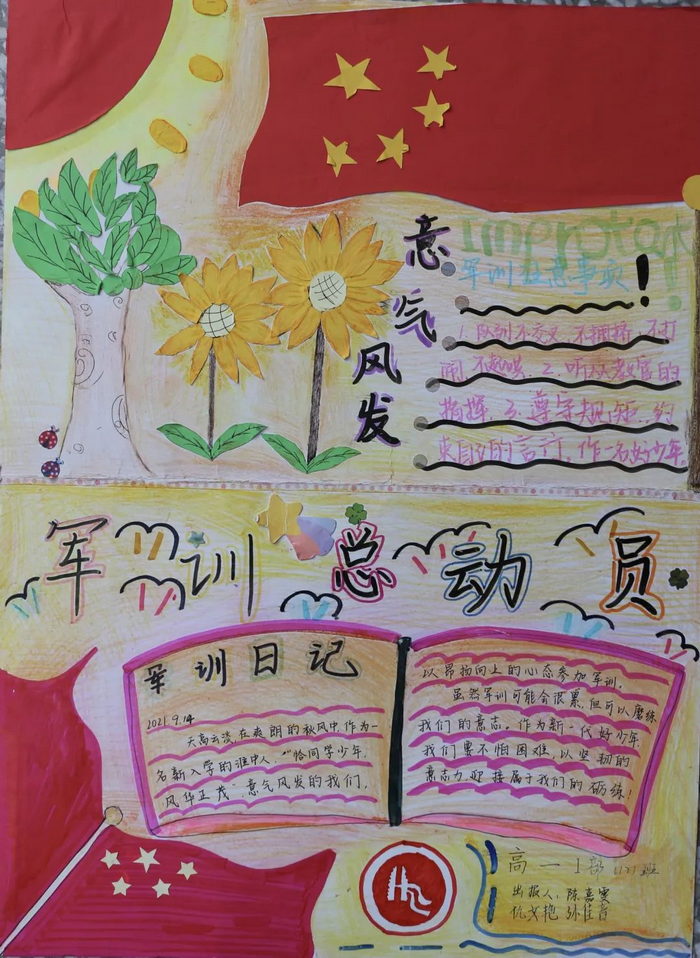 意气风发
Improtant!
军训注意事项!
1.队列不交叉,不拥挤,不打
闹,不起哄.2.听从教官的
指挥.3.遵守规矩.约
束自己的言行,作一名好少年
军训总动员
军训日记
2021.9.14
天高云淡,在爽朗的秋风中,作为一
名新入学的淮中人,“恰同学少年,
风华正茂”意气风发的我们,
以昂扬向上的心态参加军训,
虽然军训可能会很累,但可以磨练
我们的意志。作为新一代好少年,
我们要不怕困难,以坚韧的
意志力,迎接属于我们的砺练!
高一1部 班
出报人:陈嘉雯
仇文艳 张佳音